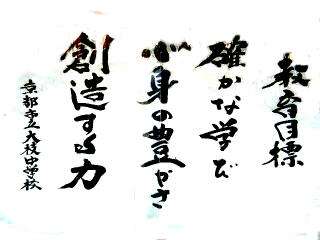 教育目標
確かな学び
心身の豊かさ
創造する力
京都市立大枝中学校